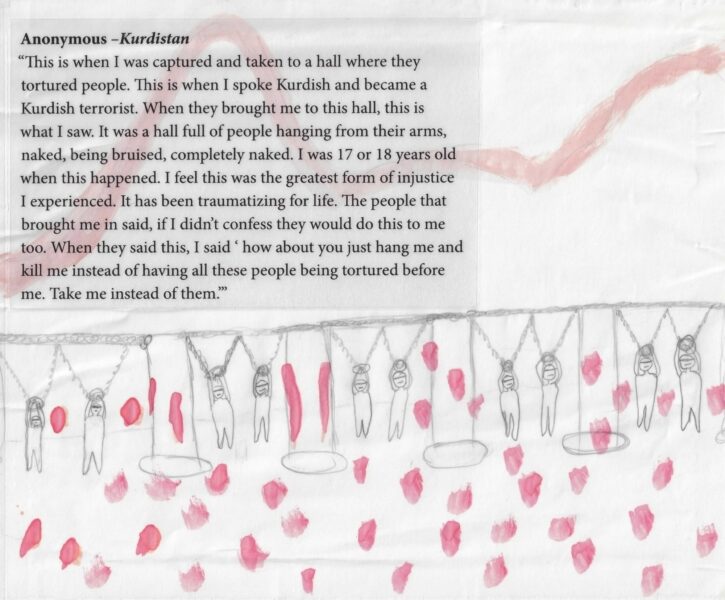 Anonymous –Kurdistan
“This is when I was captured and taken to a hall where they
tortured people. This is when I spoke Kurdish and became a
Kurdish terrorist. When they brought me to this hall, this is
what I saw. It was a hall full of people hanging from their arms,
naked, being bruised, completely naked. I was 17 or 18 years old
when this happened. I feel this was the greatest form of injustice
I experienced. It has been traumatizing for life. The people that
brought me in said, if I didn’t confess they would do this to me
too. When they said this, I said ‘ how about you just hang me and
kill me instead of having all these people being tortured before
me. Take me instead of them.’”